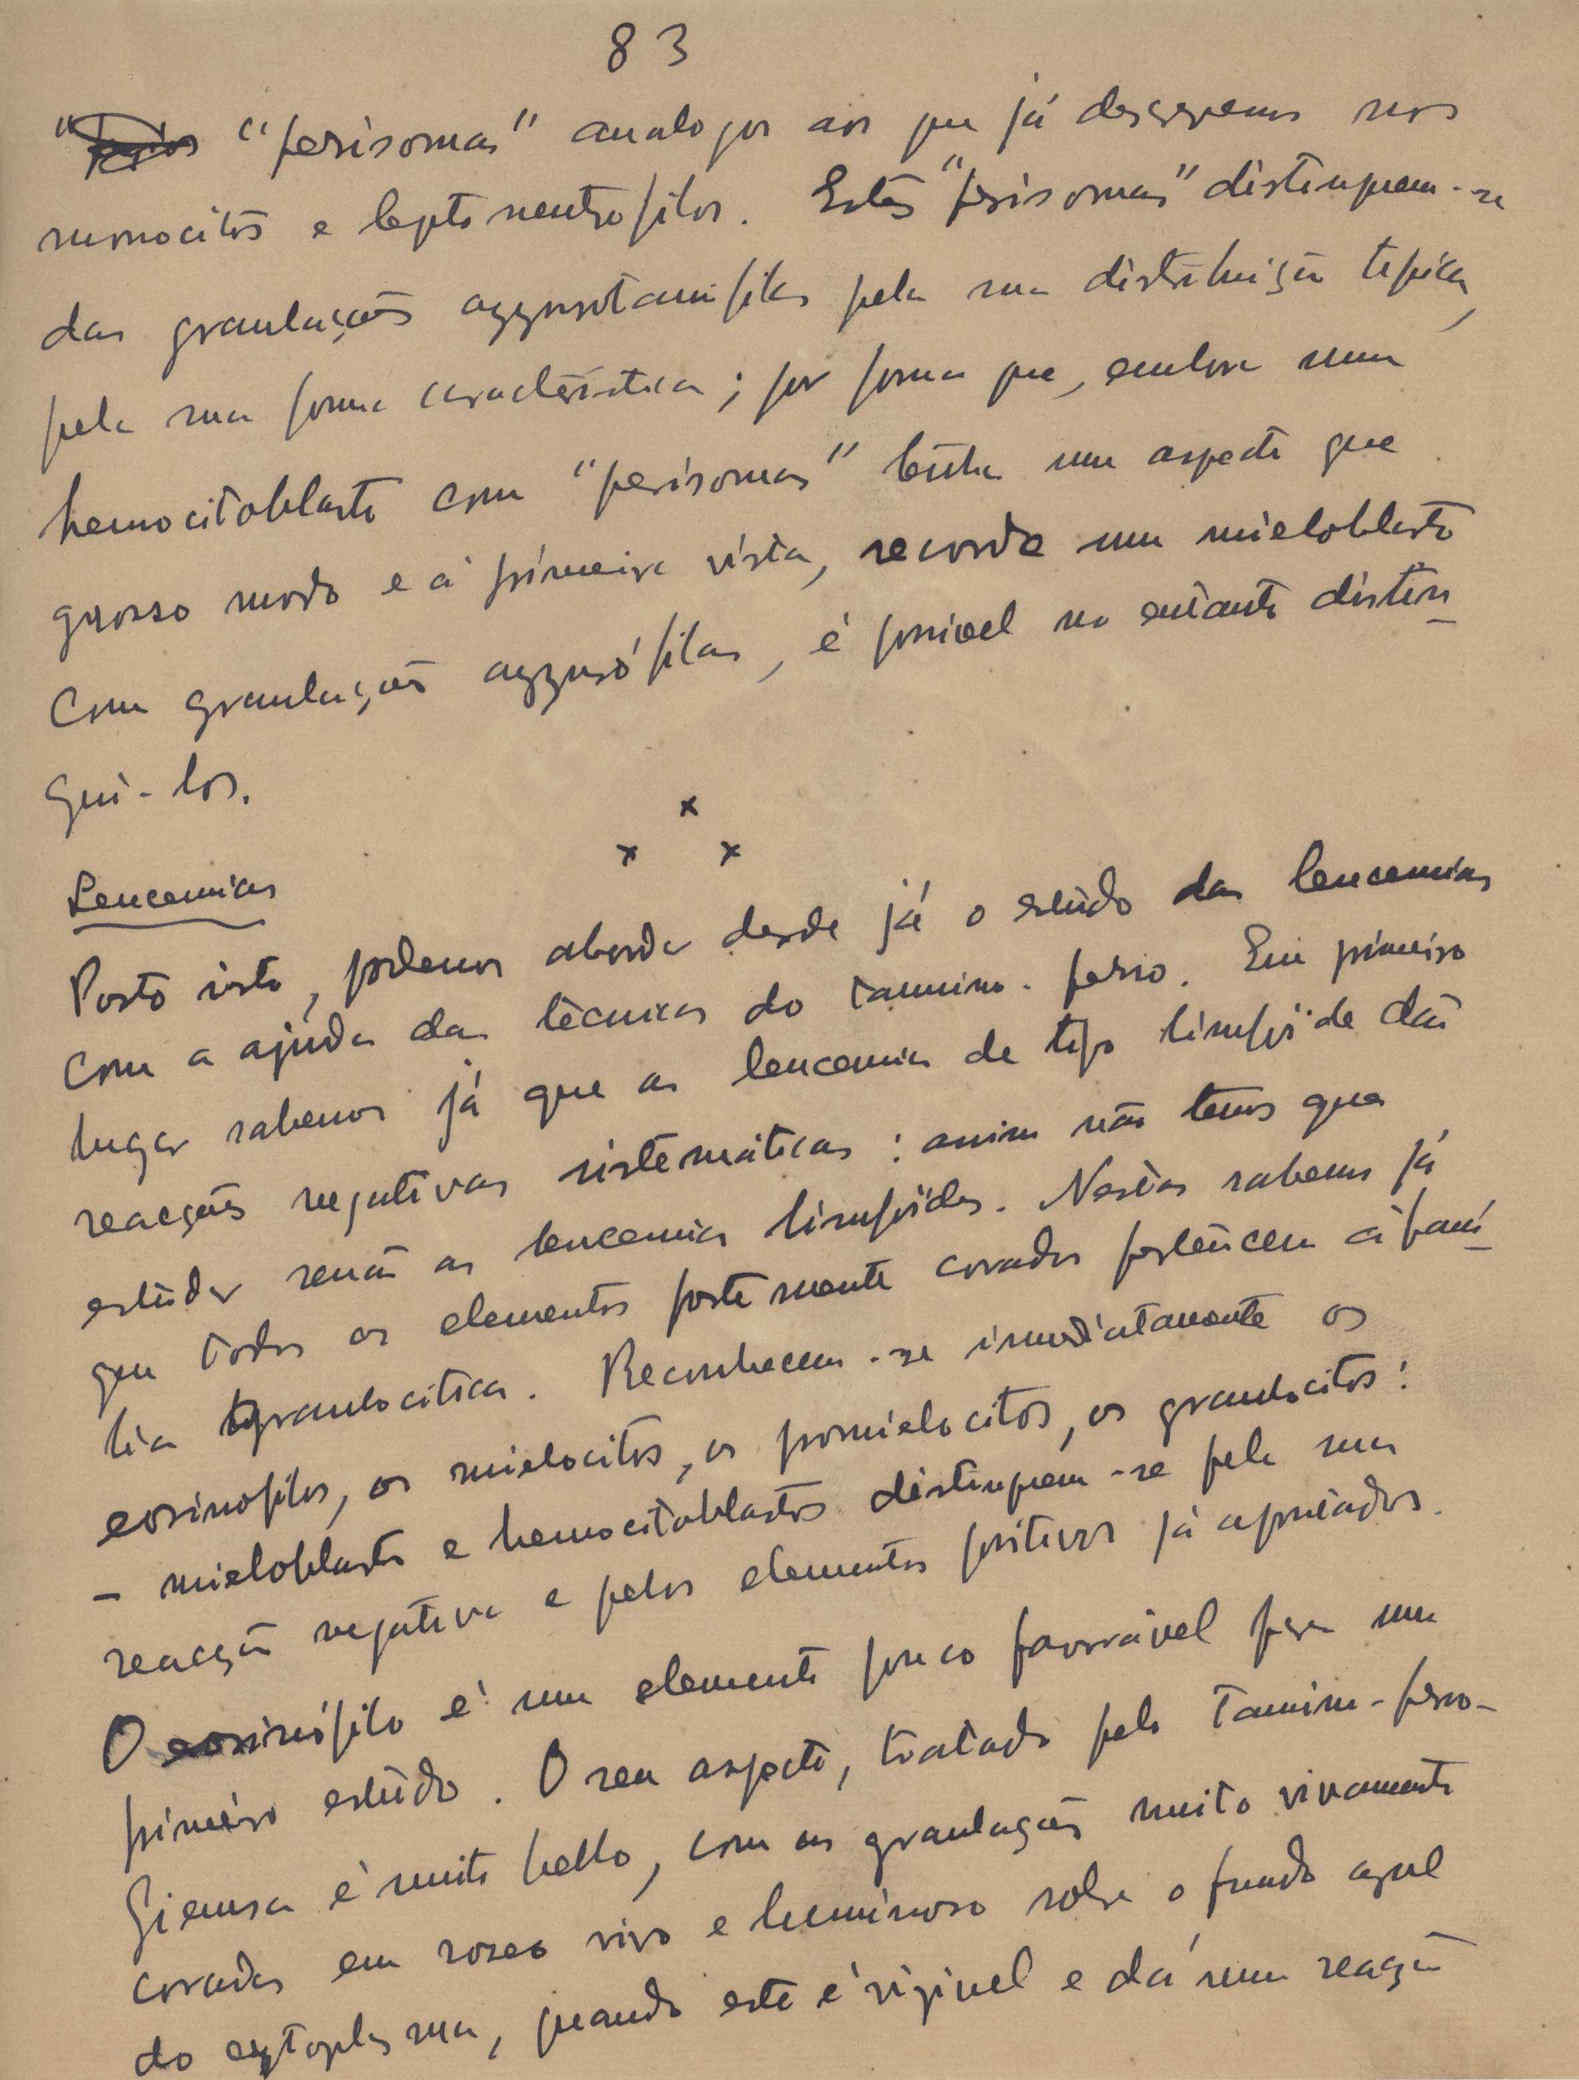 83
"perisomas" analogos aos que já descrevemos nos
monocitos e lepto neutrofilos. Estes "perisomas" distinguem-se
das granulações azzurotanifilas pela sua distribuição tipica,
pela sua forma caracteristica; por forma que, embora um
hemocitoblasto com "perisomas" tenha um aspecto que
grosso modo e á primeira vista, recorda um mieloblasto
com granulações azzurófilas, é possivel no entanto distin-
gui-los.
x
x x
Leucemias
Posto isto, podemos abordar desde já o estudo das leucemias
com a ajuda das técnicas do tannino-ferro. Em primeiro
lugar sabemos já que as leucemias de tipo linfoïde dão
reacções negativas sistemáticas: assim não temos que
estudar senão as leucemias linfoïdes. Nestas sabemos já
que todos os elementos fortemente corados pertencem á famí-
lia granulocitica. Reconhecem-se imediatamente os
eosinofilos, os mielocitos, os promielocitos, os granulocitos:
- mieloblasto e hemocitoblastos distinguem-se pela sua
reacção negativa e pelos elementos positivos já apontados.
O eosinófilo é um elemento pouco favorável para um
primeiro estudo. O seu aspecto, tratado pelo Tanino-ferro-
Giemsa é muito bello, com as granulações muito vivamente
coradas em roseo vivo e luminoso sobre o fundo azul
do cytoplasma, quando este é visivel e dá uma reacção